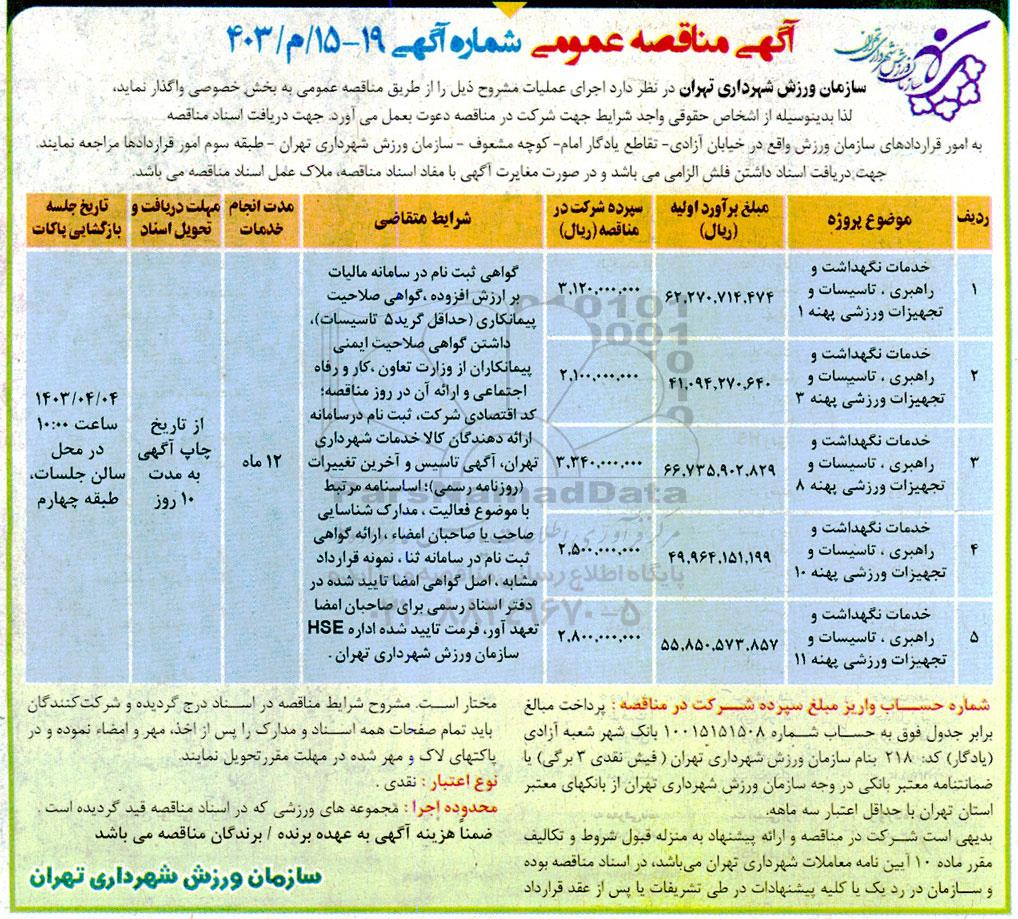 آگهی مناقصه عمومی شماره آگهی ۱۹-۱۵/م/۴۰۳
سازمان ورزش شهرداری تهران
سازمان ورزش شهرداری تهران در نظر دارد اجرای عملیات مشروح ذیل را از طریق مناقصه عمومی به بخش خصوصی واگذار نماید،
لذا بدینوسیله از اشخاص حقوقی واجد شرایط جهت شرکت در مناقصه دعوت بعمل می آورد. جهت دریافت اسناد مناقصه
به امور قراردادهای سازمان ورزش واقع در خیابان آزادی- تقاطع یادگار امام- کوچه مشعوف - سازمان ورزش شهرداری تهران - طبقه سوم امور قراردادها مراجعه نمایند.
جهت دریافت اسناد داشتن فلش الزامی می باشد و در صورت مغایرت آگهی با مفاد اسناد مناقصه، ملاک عمل اسناد مناقصه می باشد.
ردیف
موضوع پروژه
مبلغ برآورد اولیه
(ریال)
سپرده شرکت در
مناقصه (ریال)
شرایط متقاضی
مدت انجام
خدمات
مهلت دریافت و
تحویل اسناد
تاریخ جلسه
بازگشایی پاکات
۱
خدمات نگهداشت و
راهبری ، تاسیسات و
تجهیزات ورزشی پهنه ۱
۶۲,۲۷۰,۷۱۴,۴۷۴
۳,۱۲۰,۰۰۰,۰۰۰
۲
خدمات نگهداشت و
راهبری ، تاسیسات و
تجهیزات ورزشی پهنه ۳
۴۱,۰۹۴,۲۷۰,۶۴۰
۲,۱۰۰,۰۰۰,۰۰۰
۳
خدمات نگهداشت و
راهبری ، تاسیسات و
تجهیزات ورزشی پهنه ۸
۶۶,۷۳۵,۹۰۲,۸۲۹
۳,۳۴۰,۰۰۰,۰۰۰
۴
خدمات نگهداشت و
راهبری ، تاسیسات و
تجهیزات ورزشی پهنه ۱۰
۴۹,۹۶۴,۱۵۱,۱۹۹
۲,۵۰۰,۰۰۰,۰۰۰
۵
خدمات نگهداشت و
راهبری ، تاسیسات و
تجهیزات ورزشی پهنه ۱۱
۵۵,۸۵۰,۵۷۳,۸۵۷
۲,۸۰۰,۰۰۰,۰۰۰
گواهی ثبت نام در سامانه مالیات
بر ارزش افزوده ،گواهی صلاحیت
پیمانکاری (حداقل گرید۵ تاسیسات)،
داشتن گواهی صلاحیت ایمنی
پیمانکاران از وزارت تعاون ،کار و رفاه
اجتماعی و ارائه آن در روز مناقصه؛
کد اقتصادی شرکت، ثبت نام درسامانه
ارائه دهندگان کالا خدمات شهرداری
تهران، آگهی تاسیس و آخرین تغییرات
(روزنامه رسمی)؛ اساسنامه مرتبط
با موضوع فعالیت ، مدارک شناسایی
صاحب یا صاحبان امضاء ، ارائه گواهی
ثبت نام در سامانه ثنا ، نمونه قرارداد
مشابه ، اصل گواهی امضا تایید شده در
دفتر اسناد رسمی برای صاحبان امضا
تعهد آور، فرمت تایید شده اداره HSE
سازمان ورزش شهرداری تهران .
۱۲ ماه
از تاریخ
چاپ آگهی
به مدت
۱۰ روز
۱۴۰۳/۰۴/۰۴
ساعت ۱۰:۰۰
در محل
سالن جلسات،
طبقه چهارم
ParsNamadData
پایگاه اطلاع رسانی
شماره حساب واریز مبلغ سپرده شرکت در مناقصه : پرداخت مبالغ
برابر جدول فوق به حساب شماره ۱۰۰۱۵۱۵۱۵۰۸ بانک شهر شعبه آزادی
(یادگار) کد: ۲۱۸ بنام سازمان ورزش شهرداری تهران ( فیش نقدی ۳ برگی) یا
ضمانتنامه معتبر بانکی در وجه سازمان ورزش شهرداری تهران از بانکهای معتبر
استان تهران با حداقل اعتبار سه ماهه.
بدیهی است شرکت در مناقصه و ارائه پیشنهاد به منزله قبول شروط و تکالیف
مقرر ماده ۱۰ آیین نامه معاملات شهرداری تهران می‌باشد، در اسناد مناقصه بوده
و سازمان در رد یک یا کلیه پیشنهادات در طی تشریفات یا پس از عقد قرارداد
مختار است. مشروح شرایط مناقصه در اسناد درج گردیده و شرکت‌کنندگان
باید تمام صفحات همه اسناد و مدارک را پس از اخذ، مهر و امضاء نموده و در
پاکتهای لاک و مهر شده در مهلت مقرر تحویل نمایند.
نوع اعتبار : نقدی .
محدوده اجرا : مجموعه های ورزشی که در اسناد مناقصه قید گردیده است .
ضمناً هزینه آگهی به عهده برنده / برندگان مناقصه می باشد
سازمان ورزش شهرداری تهران